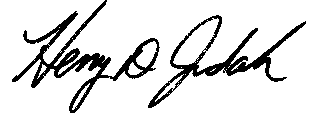 Henry D Judah